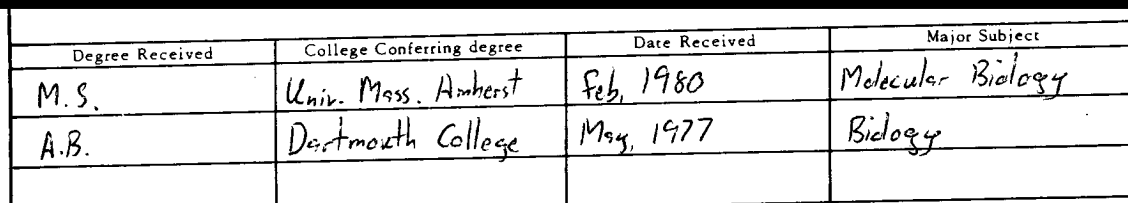 Degree Received College Conferring degree Date Received Major Subject
M.S. Univ. Mass. Amherst Feb, 1980 Molecular Biology
A.B. Dartmouth College May, 1977 Biology